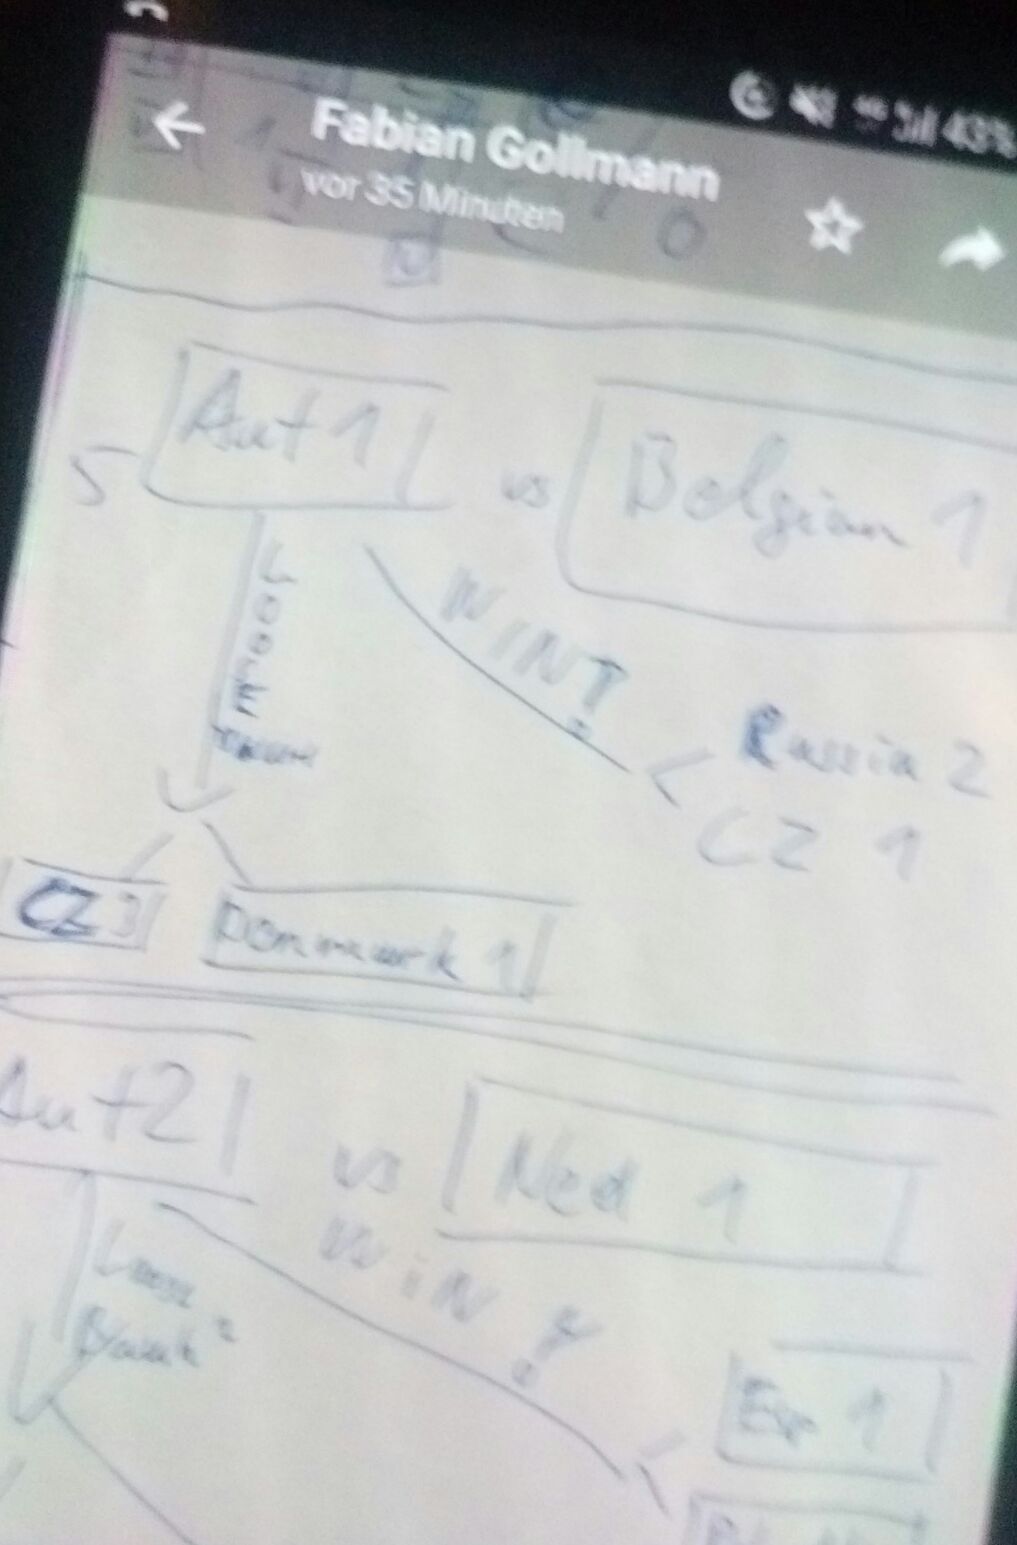 43%
Fabian Gollmann
vor 35 Minuten
5 Aut 1 vs Belgium 1
LOOSE
WIN?
Russia 2
CZ 1
CZ 3
Danmark 1
Aut 2 vs Ned 1
WiN ?